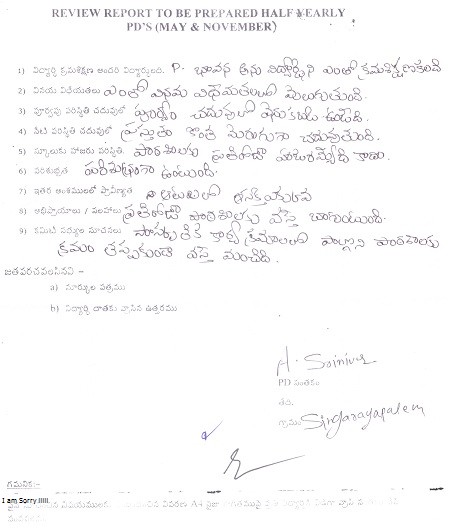 REVIEW REPORT TO BE PREPARED HALF YEARLY
PD'S (MAY & NOVEMBER)
1) విద్యార్థి క్రమశిక్షణ అందరి విద్యార్థులది. P. భావన అను విద్యార్థిని ఎంతో క్రమశిక్షణకలది
2) వినయ విధేయతలు ఎంతో వినయ విధేయతలతో మెలుగుతుంది.
3) పూర్వపు పరిస్థితి చదువులో పూర్వం చదువులో వెనుకబడి ఉండేది.
4) నేటి పరిస్థితి చదువులో ప్రస్తుతం కొంత మెరుగుగా చదువుతుంది.
5) స్కూలుకు హాజరు పరిస్థితి. పాఠశాలకు ప్రతిరోజూ హాజరయ్యేది కాదు.
6) పరిశుభ్రత పరిశుభ్రంగా ఉంటుంది.
7) ఇతర అంశములలో ప్రావీణ్యత
8) అభిప్రాయాలు / సలహాలు ప్రతిరోజూ పాఠశాలకు వస్తే బాగుంటుంది.
9) కమిటి సభ్యుల సూచనలు సాంస్కృతిక కార్యక్రమాలలో పాల్గొని పాఠశాలకు
క్రమం తప్పకుండా వస్తే మంచిది.
జతపరచవలసినవి :-
a) మార్కుల పత్రము
b) విద్యార్థి దాతకు వ్రాసిన ఉత్తరము
A. Srinivas
PD సంతకం
తేది.
గ్రామం Singarayapalem
గమనిక:-
I am Sorry !!!!!.